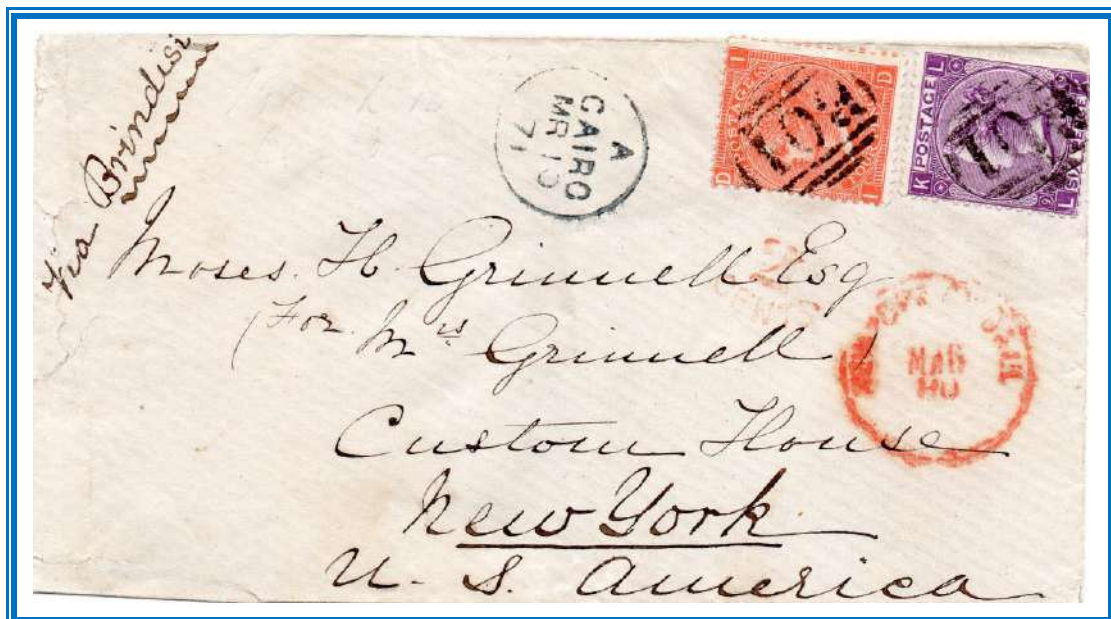 Via Brindisi
A
CAIRO
MR 10
71
D I
POSTAGE
D I
L
K POSTAGE
SIX PENCE
L
2
CENTS
MAR
Moses. H. Grinnell Esq
(For Mrs Grinnell)
Custom House
New York
U. S. America